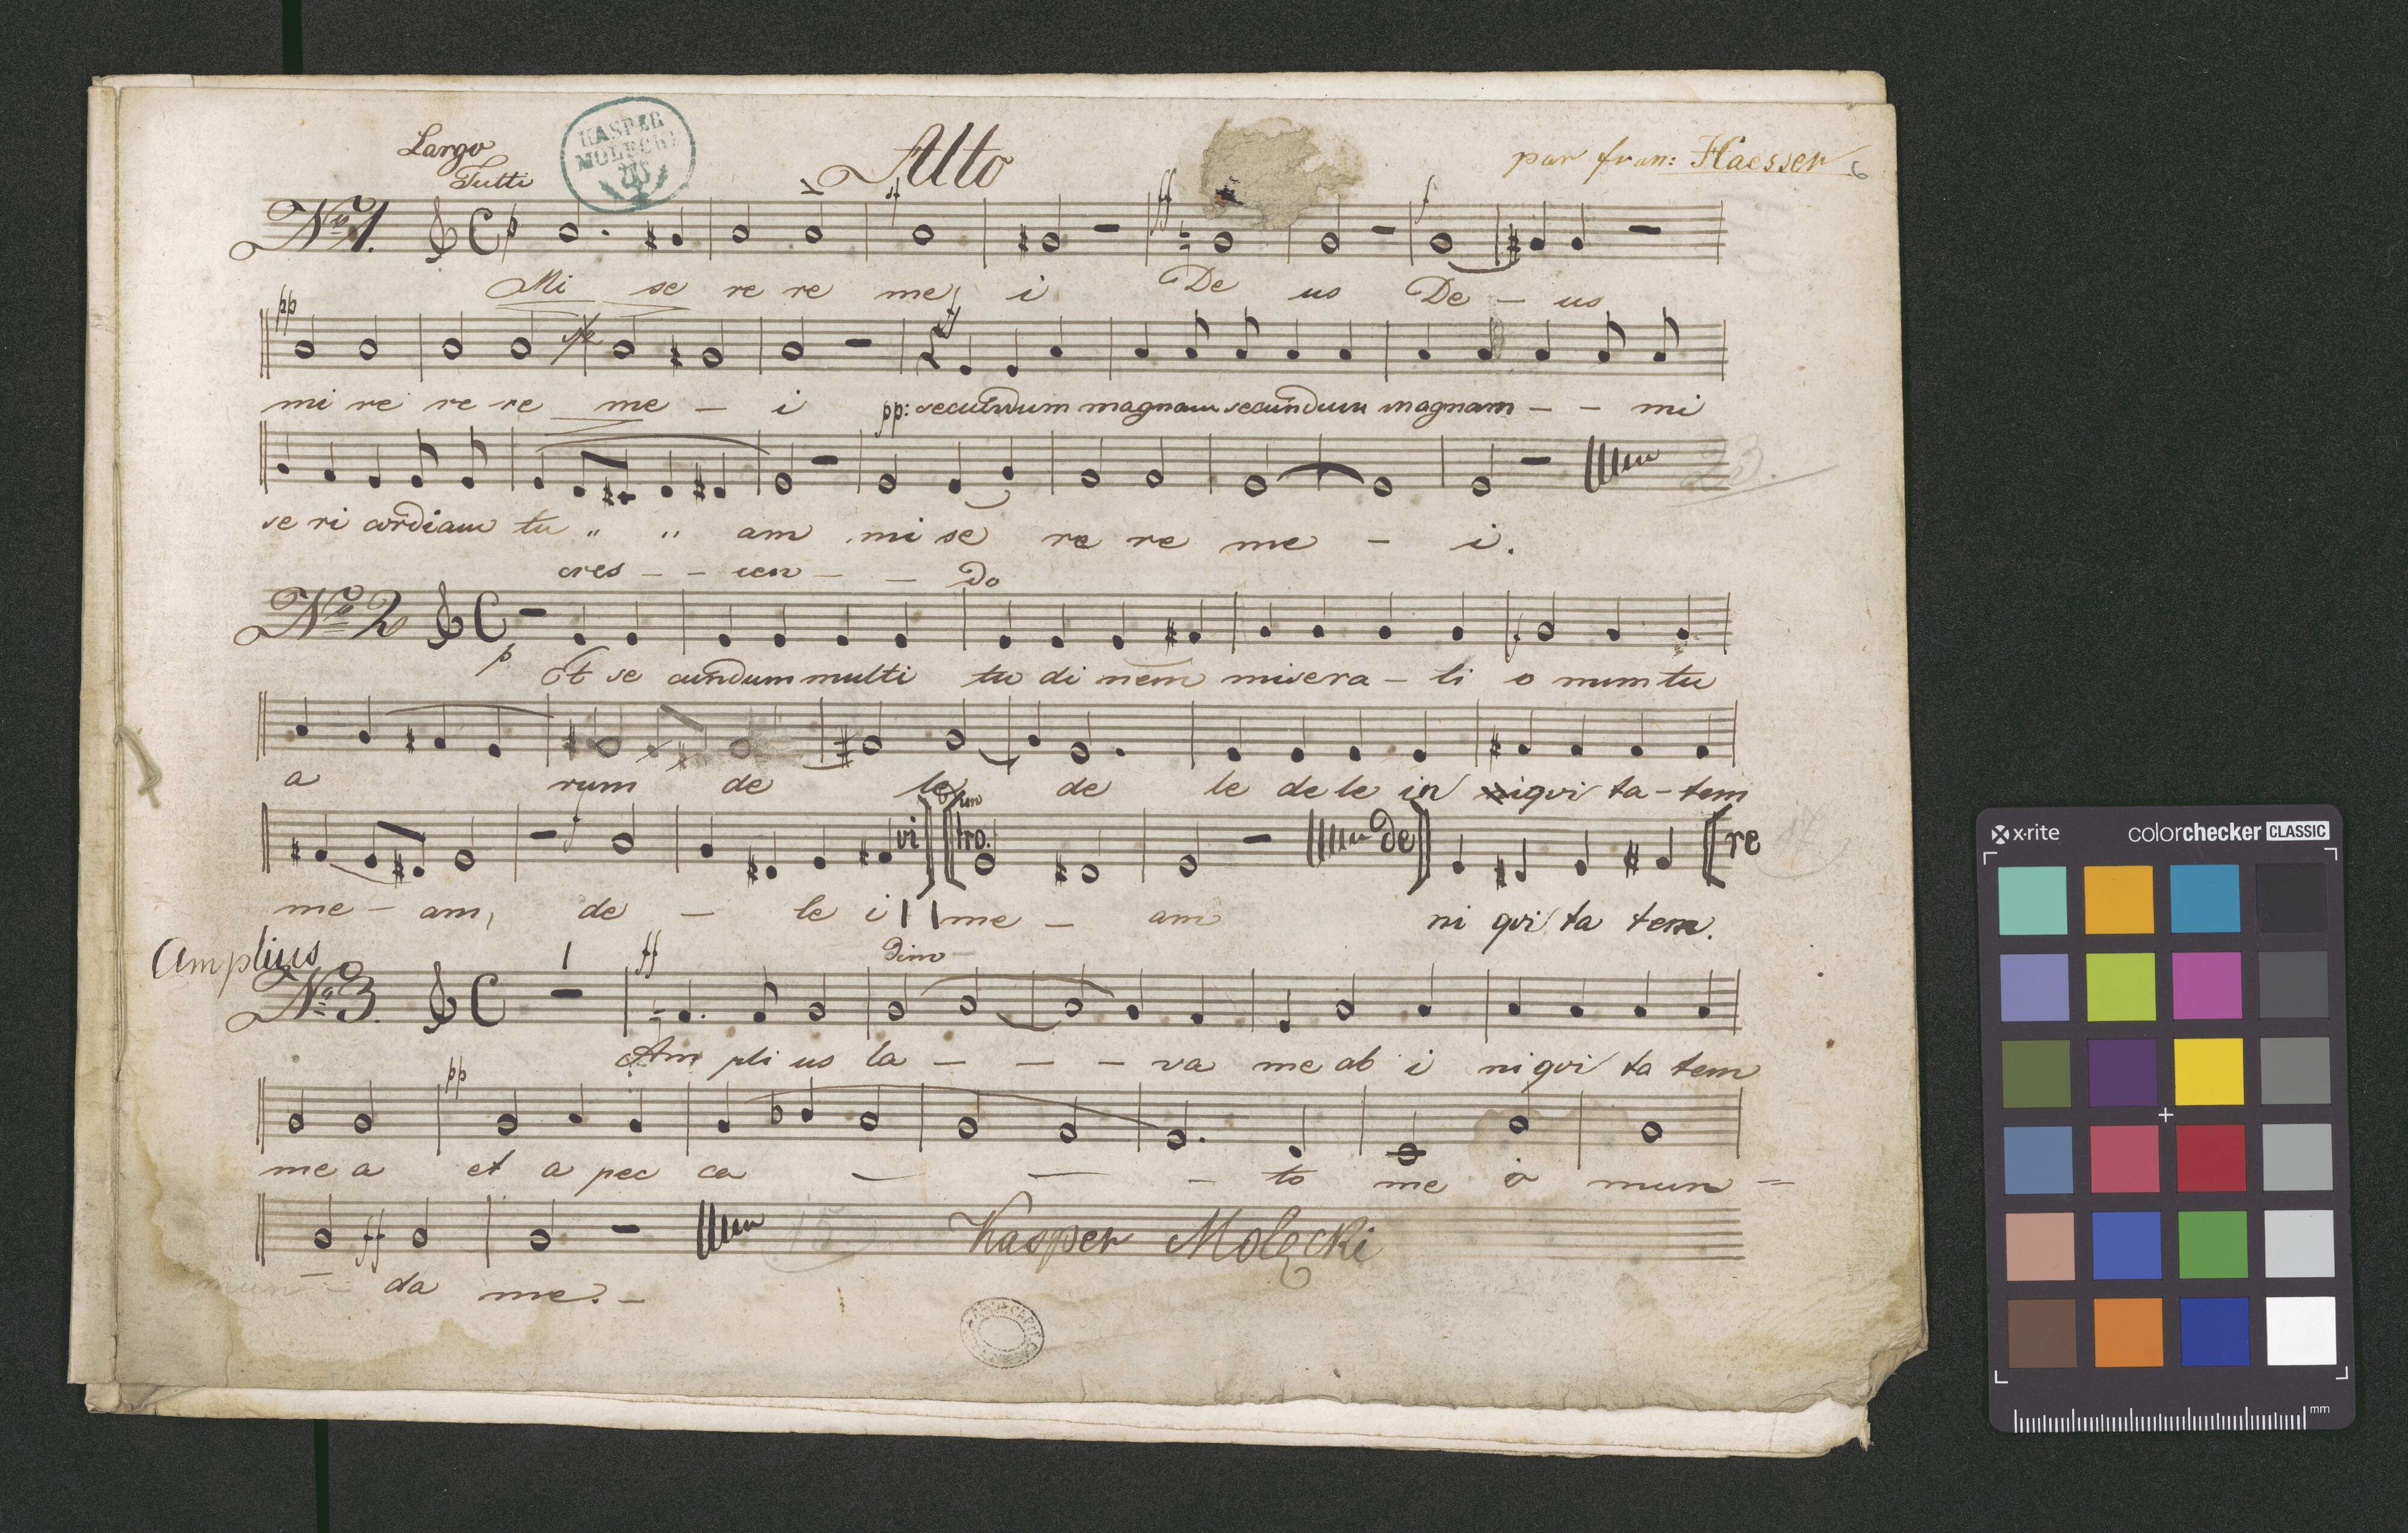 Largo
Tutti
KASPER
MOLECKI
Alto
par fran: Haesser
6
No 1.
p
ff
ff
f
Mi se re re me i De us De – us
pp
mi re re re me – i pp: secundum magnam secundum magnam – – mi
23.
se ri cordiam tu " " am mi se re re me – i.
cres – – cen – – do
No 2
p
Et se cundum multi tu di nem misera – ti o num tu
a rum de le de le de le in iqvi ta – tem
f
vi
tro.
de
re
me – am, de – le i me – am ni qvi ta tem.
Amplius
1
ff
Dim
No 3.
Am pli us la – – – va me ab i ni qvi ta tem
pp
me a et a pec ca – – – to me o mun =
ff
Kasper Molęcki
mun – da me. –
x·rite
colorchecker CLASSIC
mm